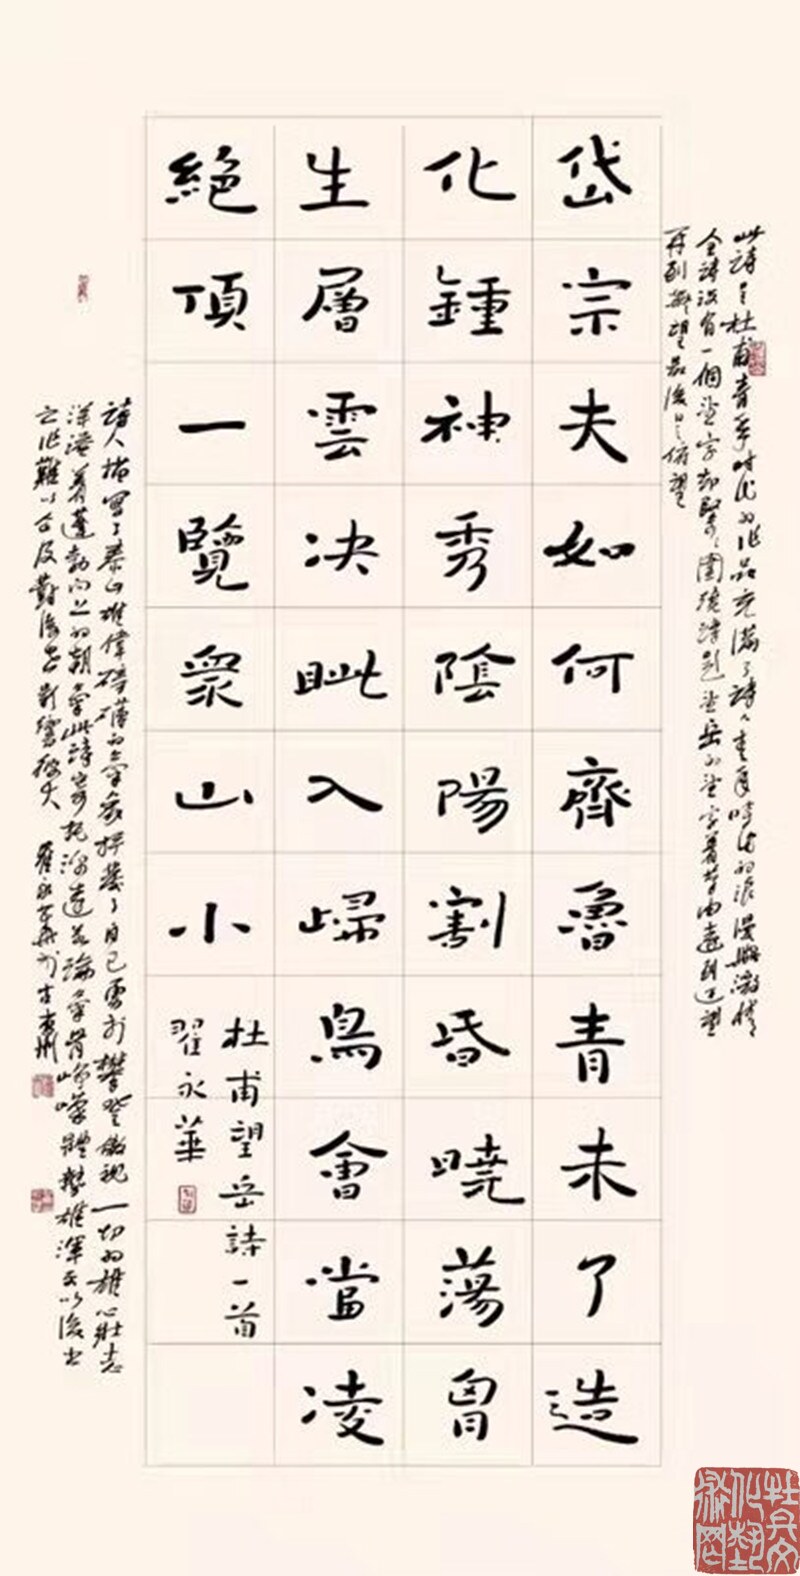 此詩是杜甫青年時代的作品充滿了詩人青年時代的浪漫與激情
全詩沒有一個望字却緊緊圍繞詩題望岳的望字着筆由遠到近望
再到凝望最後是俯望
岱宗夫如何齊魯青未了造
化鍾神秀陰陽割昏曉蕩胷
生層雲决眥入歸鳥會當凌
絕頂一覽衆山小
杜甫望岳詩一首
翟永華
詩人描寫了泰山雄偉磅礴的氣象抒發了自己勇於攀登傲視一切的雄心壯志
洋溢着蓬勃向上的朝氣此詩寄托深遠論氣骨崢嶸體勢雄渾以後出
之作難以企及對後世影響極大 翟永華於古青州